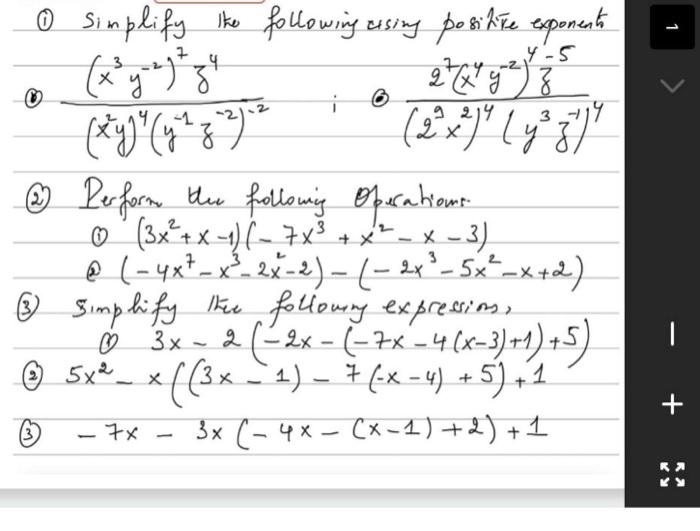 ① Simplify the following using positive exponents
① (x³y⁻²)⁷ z⁴ / (x²y)⁴ (y⁻¹ z⁻²)⁻² ; ② 2⁷(x⁴y⁻²)⁴ z⁻⁵ / (2⁹x²)⁴ (y³ z⁻¹)⁴
② Perform the following Operations.
① (3x² + x - 1)(- 7x³ + x² - x - 3)
② (- 4x⁷ - x³ - 2x² - 2) - (- 2x³ - 5x² - x + 2)
③ Simplify the following expressions,
① 3x - 2 (- 2x - (- 7x - 4 (x - 3) + 1) + 5)
② 5x² - x ((3x - 1) - 7 (-x - 4) + 5) + 1
③ - 7x - 3x (- 4x - (x - 1) + 2) + 1
1